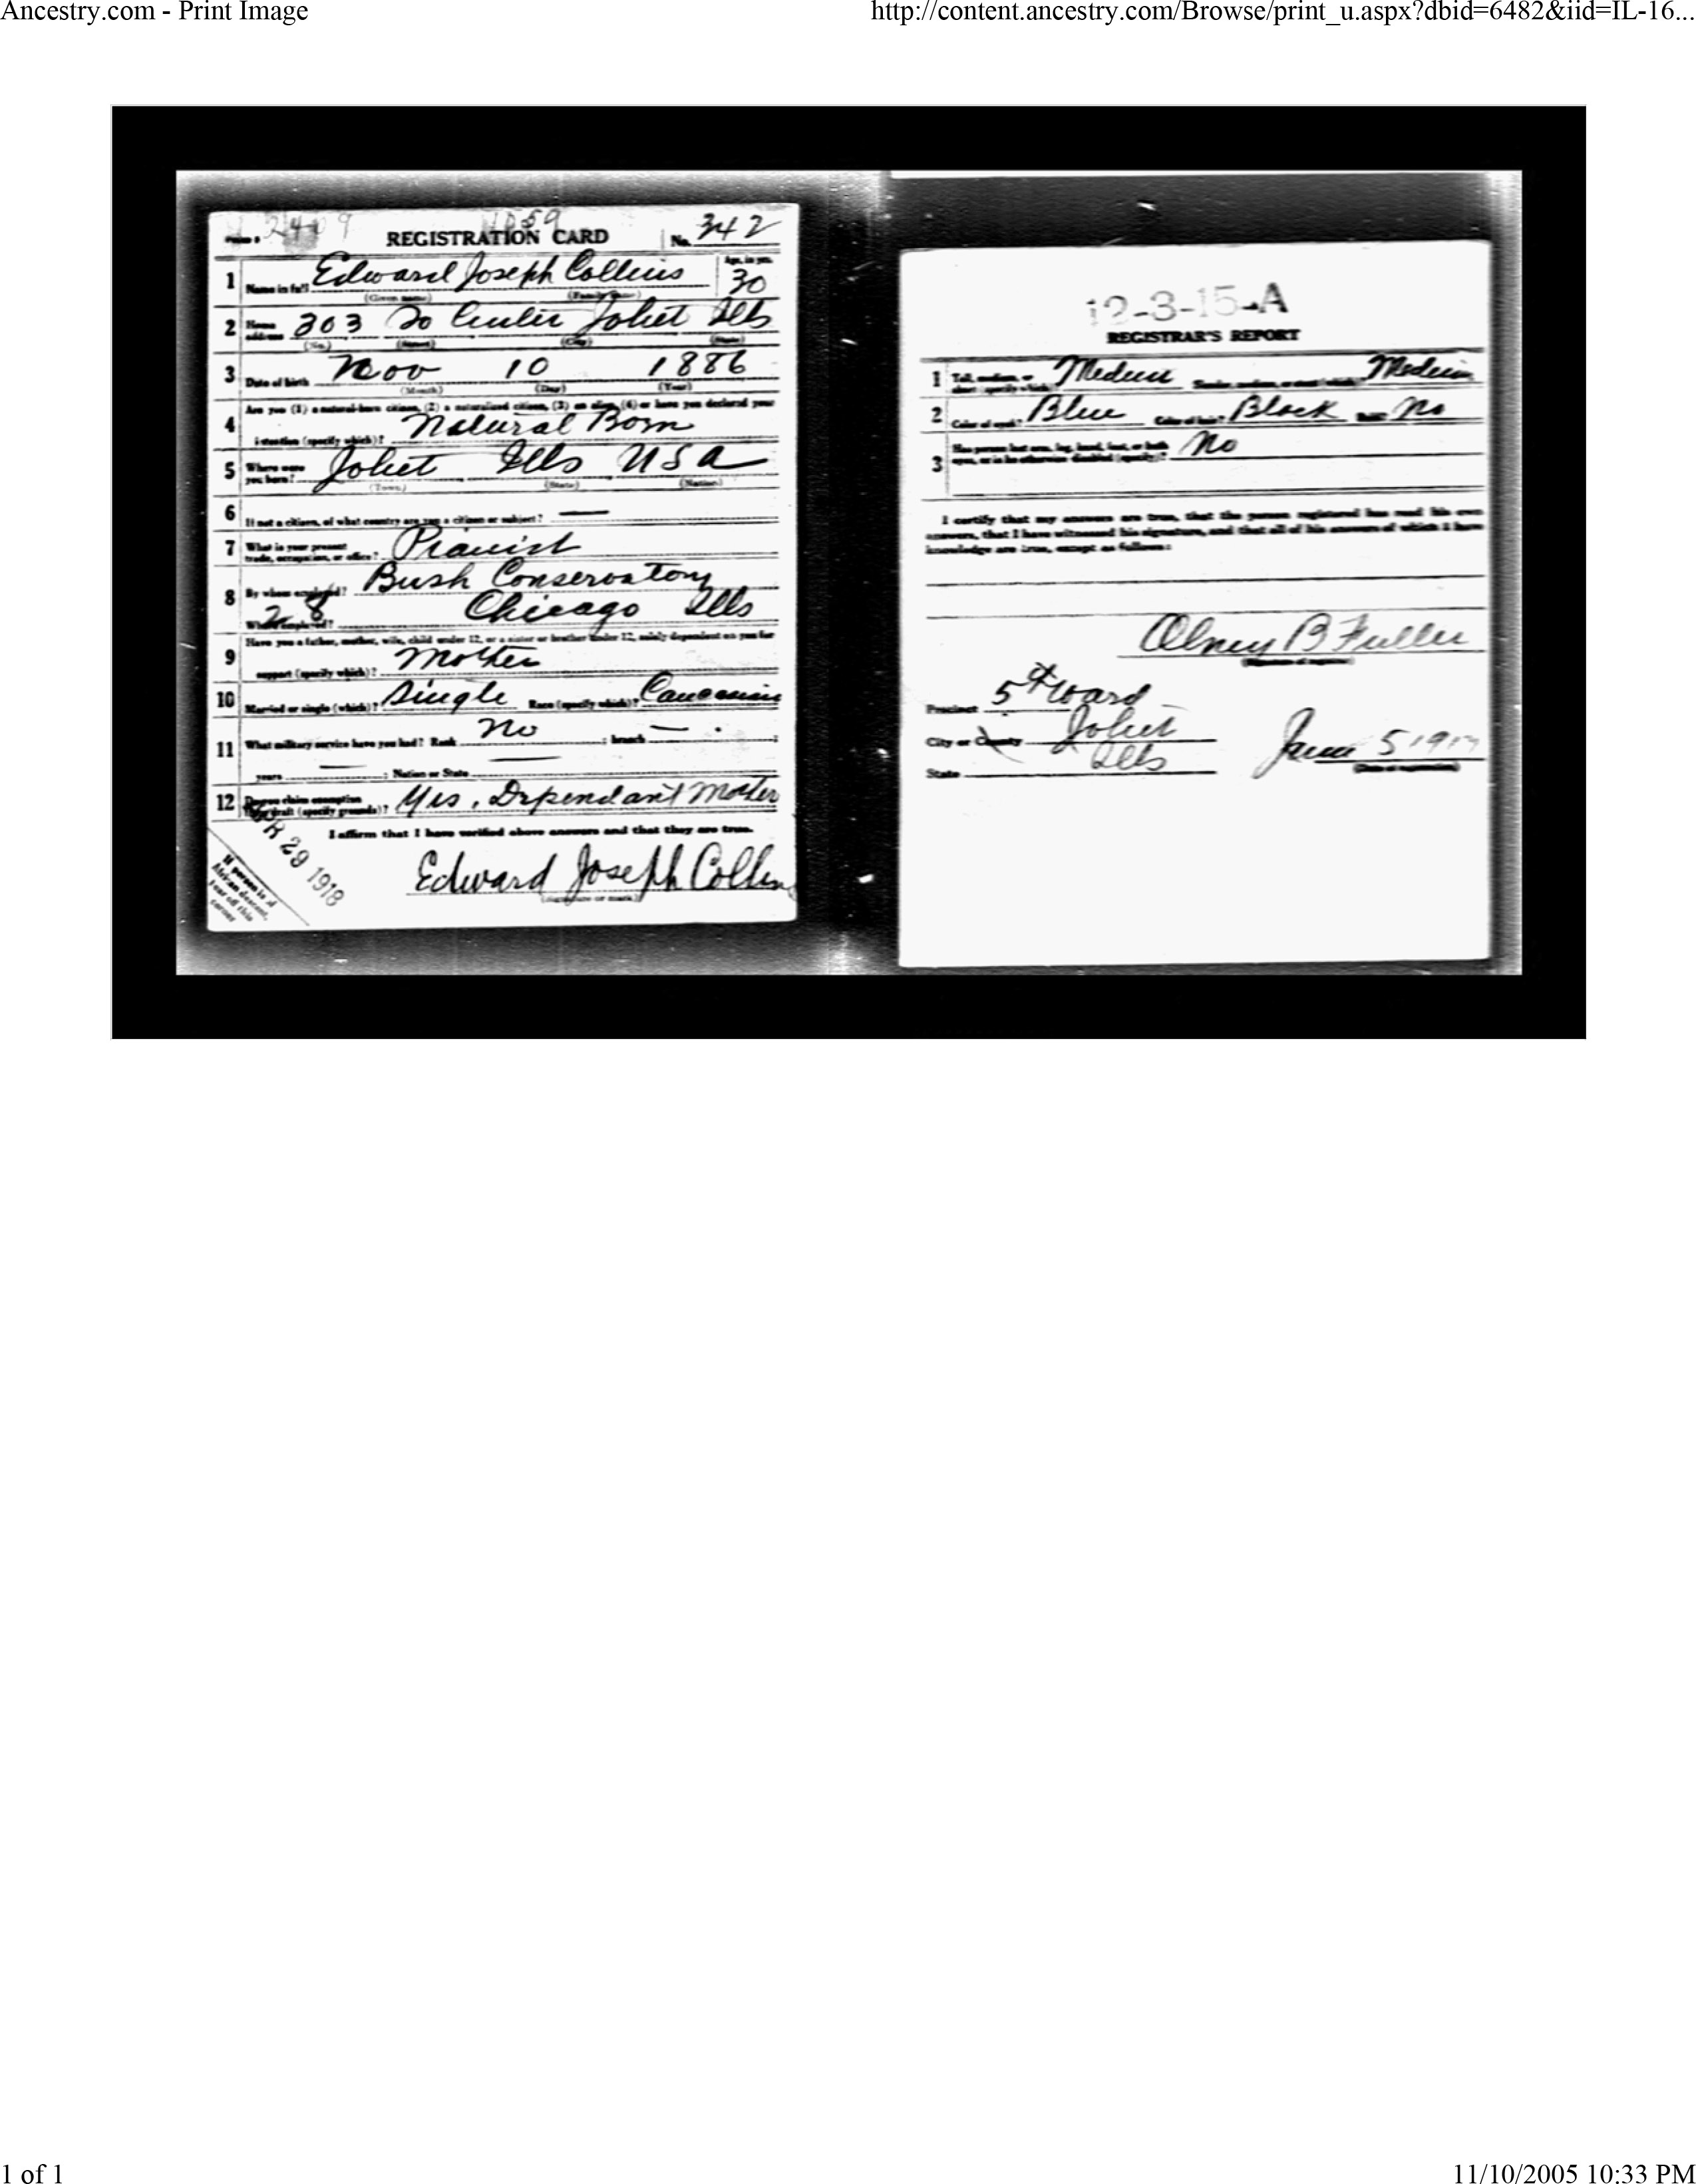 Ancestry.com - Print Image
http://content.ancestry.com/Browse/print_u.aspx?dbid=6482&iid=IL-16...
REGISTRATION CARD
No. 342
1 Name in full Edward Joseph Collins
(Given name) (Family name)
Age, in yrs. 30
2 Home address 303 So Center Joliet Ills
(No.) (Street) (City) (State)
3 Date of birth Nov 10 1886
(Month) (Day) (Year)
Are you (1) a natural-born citizen, (2) a naturalized citizen, (3) an alien, (4) or have you declared your
4 intention (specify which)? Natural Born
5 Where were you born? Joliet Ills USA
(Town) (State) (Nation)
6 If not a citizen, of what country are you a citizen or subject? —
7 What is your present trade, occupation, or office? Pianist
8 By whom employed? Bush Conservatory
Where employed? Chicago Ills
28
Have you a father, mother, wife, child under 12, or a sister or brother under 12, solely dependent on you for
9 support (specify which)? Mother
10 Married or single (which)? Single Race (specify which)? Caucasian
11 What military service have you had? Rank No ; branch — ;
years — ; Nation or State —
12 Do you claim exemption from draft (specify grounds)? Yes, Dependant Mother
I affirm that I have verified above answers and that they are true.
Edward Joseph Collins
(Signature or mark)
29 1918
If person is of
African descent,
tear off this
corner
12-3-15-A
REGISTRAR'S REPORT
1 Tall, medium, or short (specify which)? Medium Slender, medium, or stout (which)? Medium
2 Color of eyes? Blue Color of hair? Black Bald? No
3 Has person lost arm, leg, hand, foot, or both eyes, or is he otherwise disabled (specify)? No
I certify that my answers are true, that the person registered has read his own
answers, that I have witnessed his signature, and that all of his answers of which I have
knowledge are true, except as follows:
Olney B Fuller
(Signature of registrar)
Precinct 5th Ward
City or County Joliet
State Ills
June 5 1917
(Date of registration)
1 of 1
11/10/2005 10:33 PM